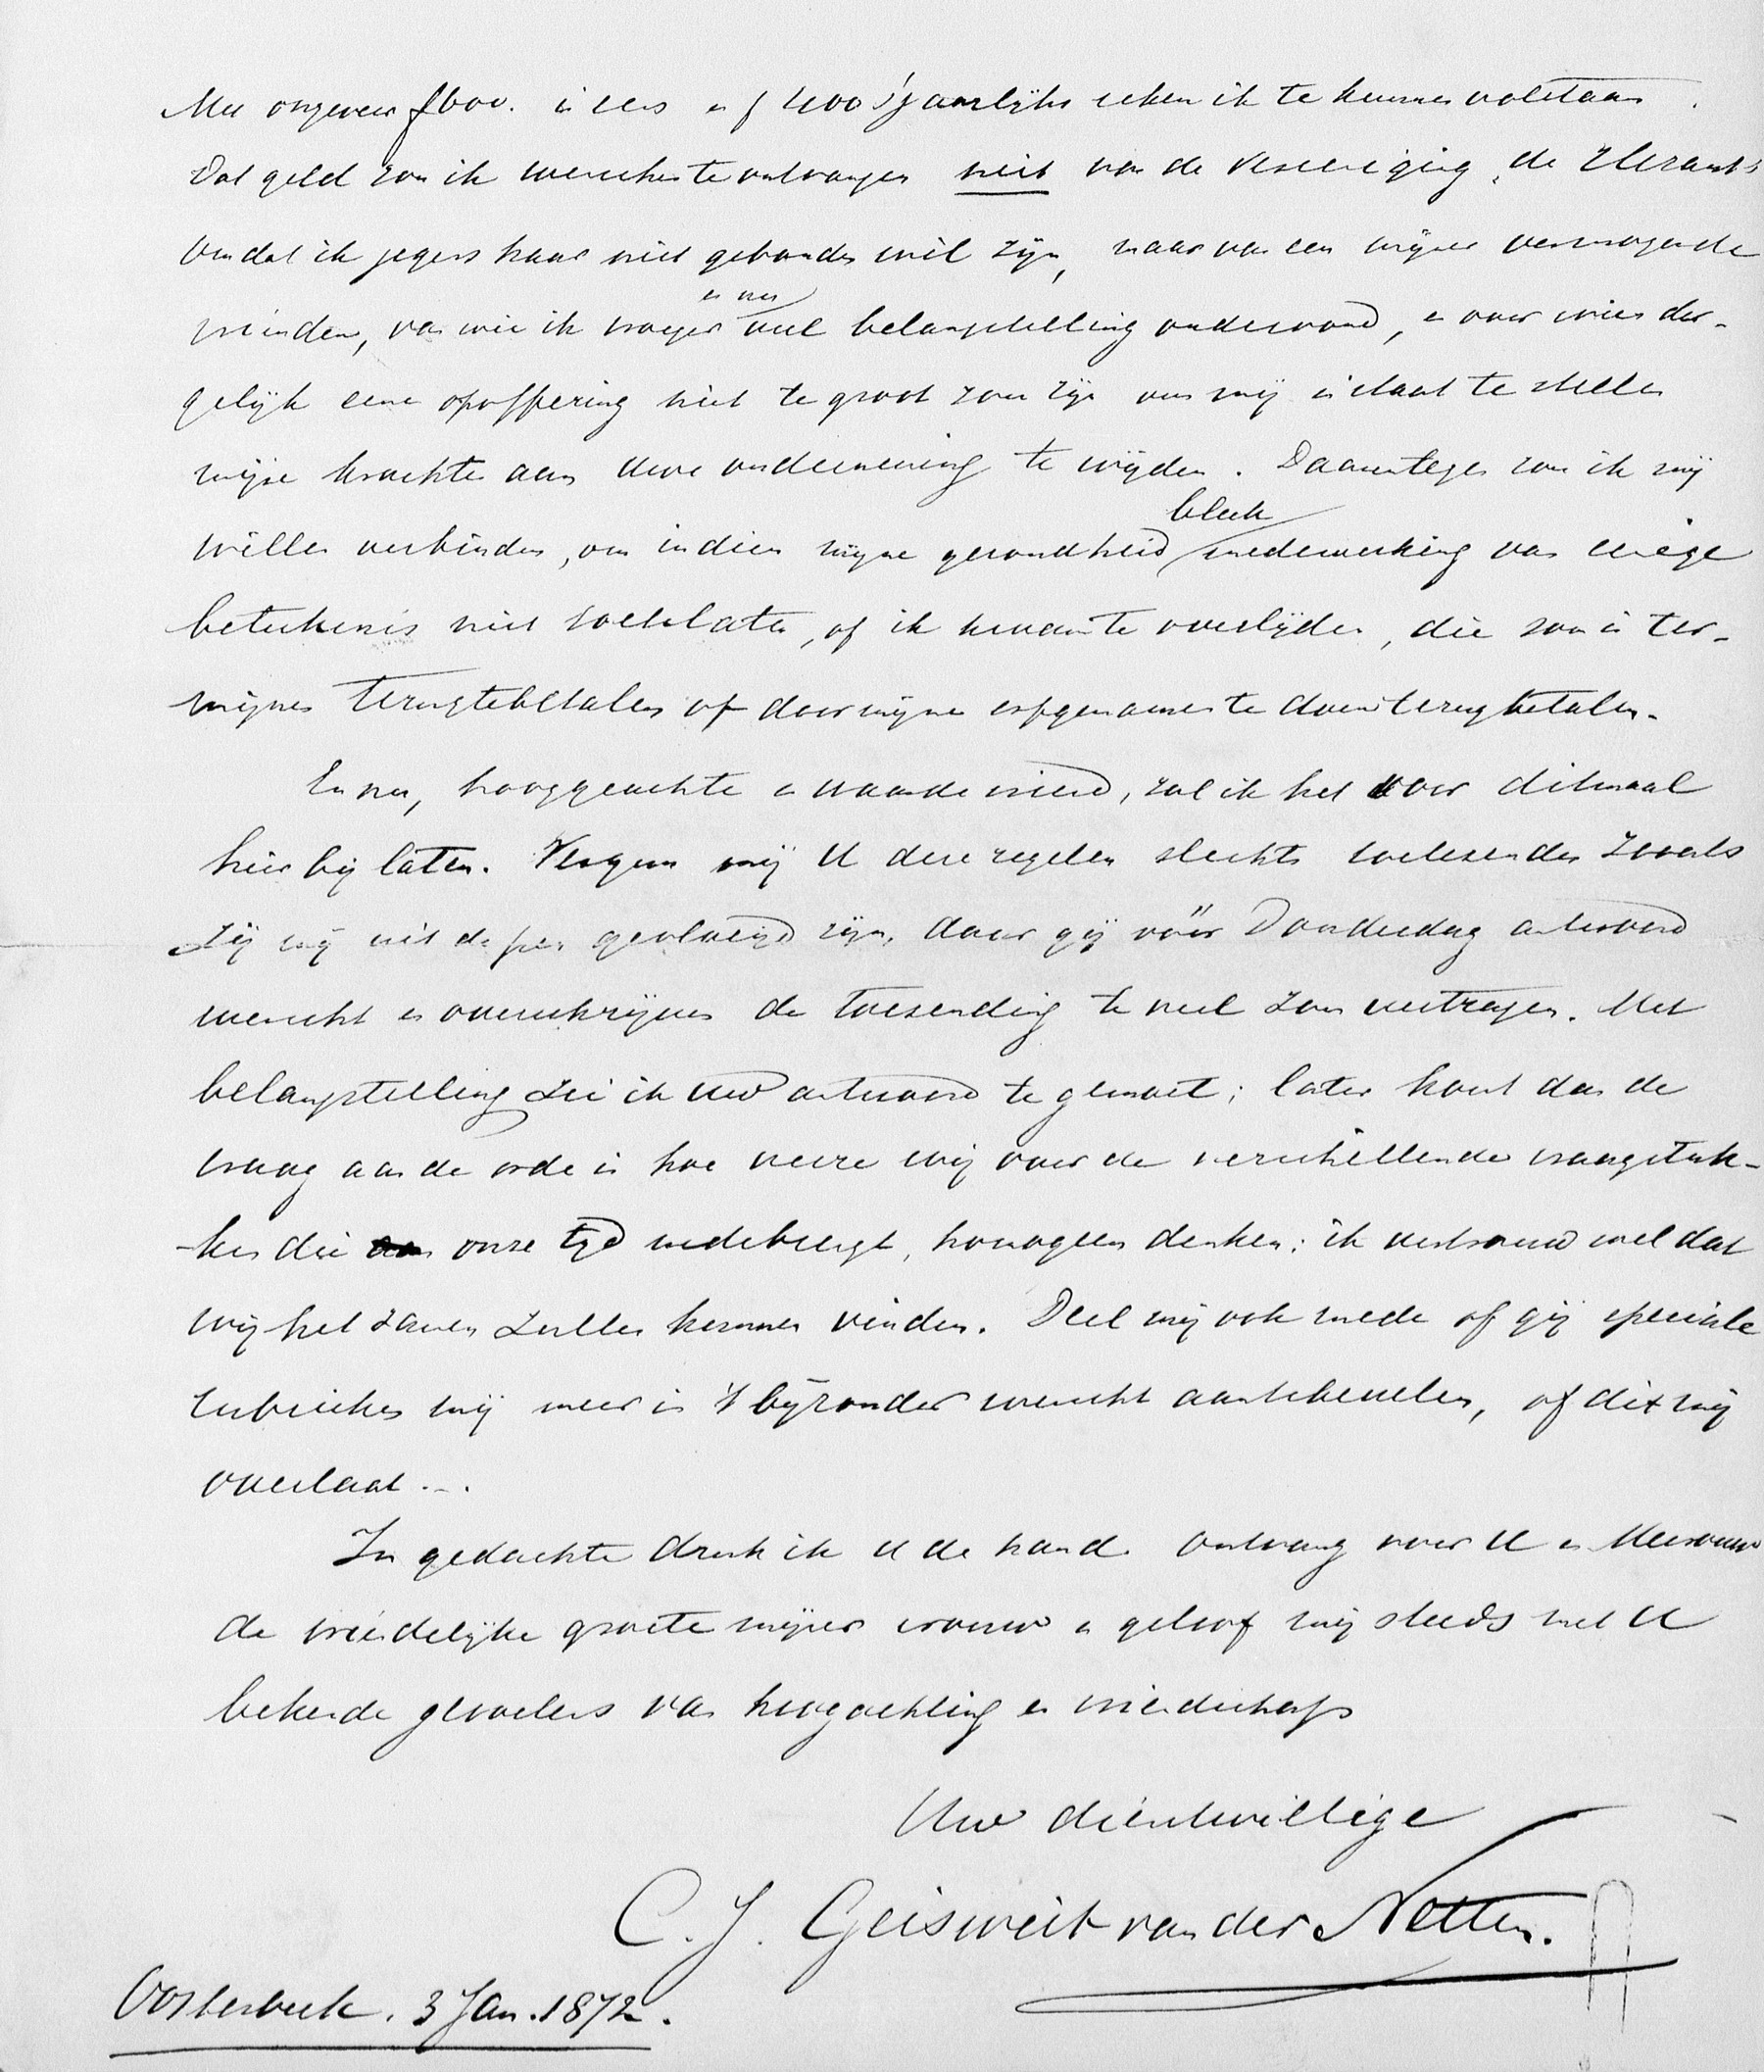 Met ongeveer f 600. in eens en f 400 's jaarlijks reken ik te kunnen volstaan.
Dat geld zou ik wenschen te ontvangen niet van de Vereeniging "de Standaard"
omdat ik jegens haar niet gebonden wil zijn, maar van een mijner vermogende
vrienden, van wie ik vroeger en nu veel belangstelling ondervond, en voor wien der-
gelijk eene opoffering niet te groot zou zijn om mij in staat te stellen
mijne krachten aan uwe onderneming te wijden. Daarentegen zou ik mij
willen verbinden, om indien mijne gezondheid bleek medewerking van eenige
beteekenis niet toetelaten, of ik kwam te overlijden, die som in ter-
mijnen terugtebetalen of door mijne erfgenamen te doen terugbetalen.
En nu, hooggeachte en waarde vriend, zal ik het voor ditmaal
hierbij laten. Vergun mij U deze regelen slechts toetezenden zooals
zij mij uit de pen gevloeid zijn, daar gij vóór Donderdag antwoord
wenscht en overschrijven de toezending te veel zou vertragen. Met
belangstelling zie ik uw antwoord te gemoet; later komt dan de
vraag aan de orde in hoe verre wij over de verschillende vraagstuk-
ken die onze tijd medebrengt, homogeen denken: ik vertrouw wel dat
wij het zamen zullen kunnen vinden. Deel mij ook mede of gij speciale
rubrieken mij meer in 't bijzonder wenscht aantebevelen, of dit mij
overlaat.
In gedachte druk ik U de hand. Ontvang voor U en Mevrouw
de vriendelijke groete mijner vrouw en geloof mij steeds met U
bekende gevoelens van hoogachting en vriendschap
Uw dienstwillige
C. J. Geisweit van der Netten.
Oosterbeek. 3 Jan. 1872.